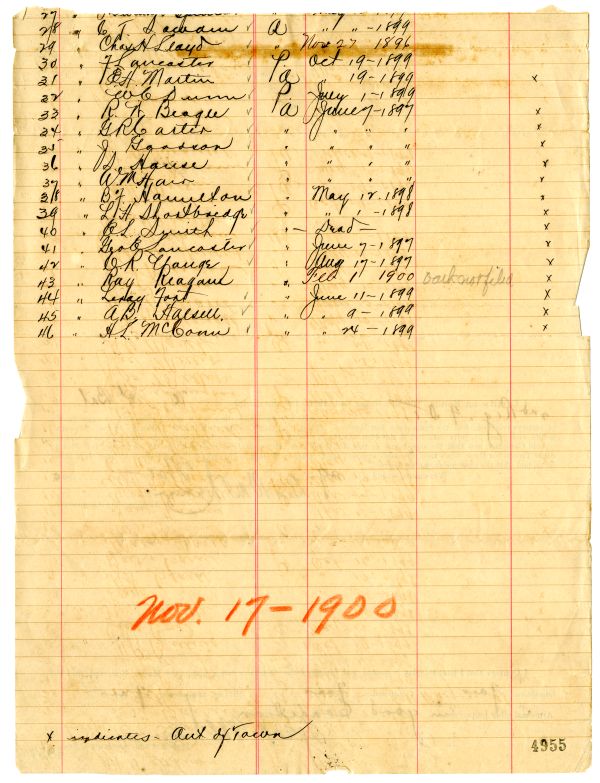 28 " C. T. A " " - 1899
29 Chas H Lloyd " Nov 27 1896
30 " J Lancaster P. Oct 19 - 1899
31 " E. H. Martin a " 19 - 1899 x
32 " W E Dunn P July 1 - 1899
33 " R. R. Beagle a June 7 - 1897 x
34 " G R Carter " " " " x
35 " J Goodson " " " " x
36 " House " " " " x
37 " W M Hair " " " " x
38 " B. F. Hamilton " May 12. 1898 x
39 " L. H. Shortbredge " " " - 1898 x
40 " E L Smith " - Dead - x
41 " Geo E Lancaster " June 7 - 1897 x
42 " O. R. " Aug 17 - 1897 x
43 " Ray Reagans " Feb 1 1900 Oath not filed x
44 " Leroy Fort " June 11 - 1899 x
45 " A. B. Halsell " " 9 - 1899 x
46 " H. L. McCann " " 24 - 1899 x
Nov. 17 - 1900
x indicates - Out of Town
4955